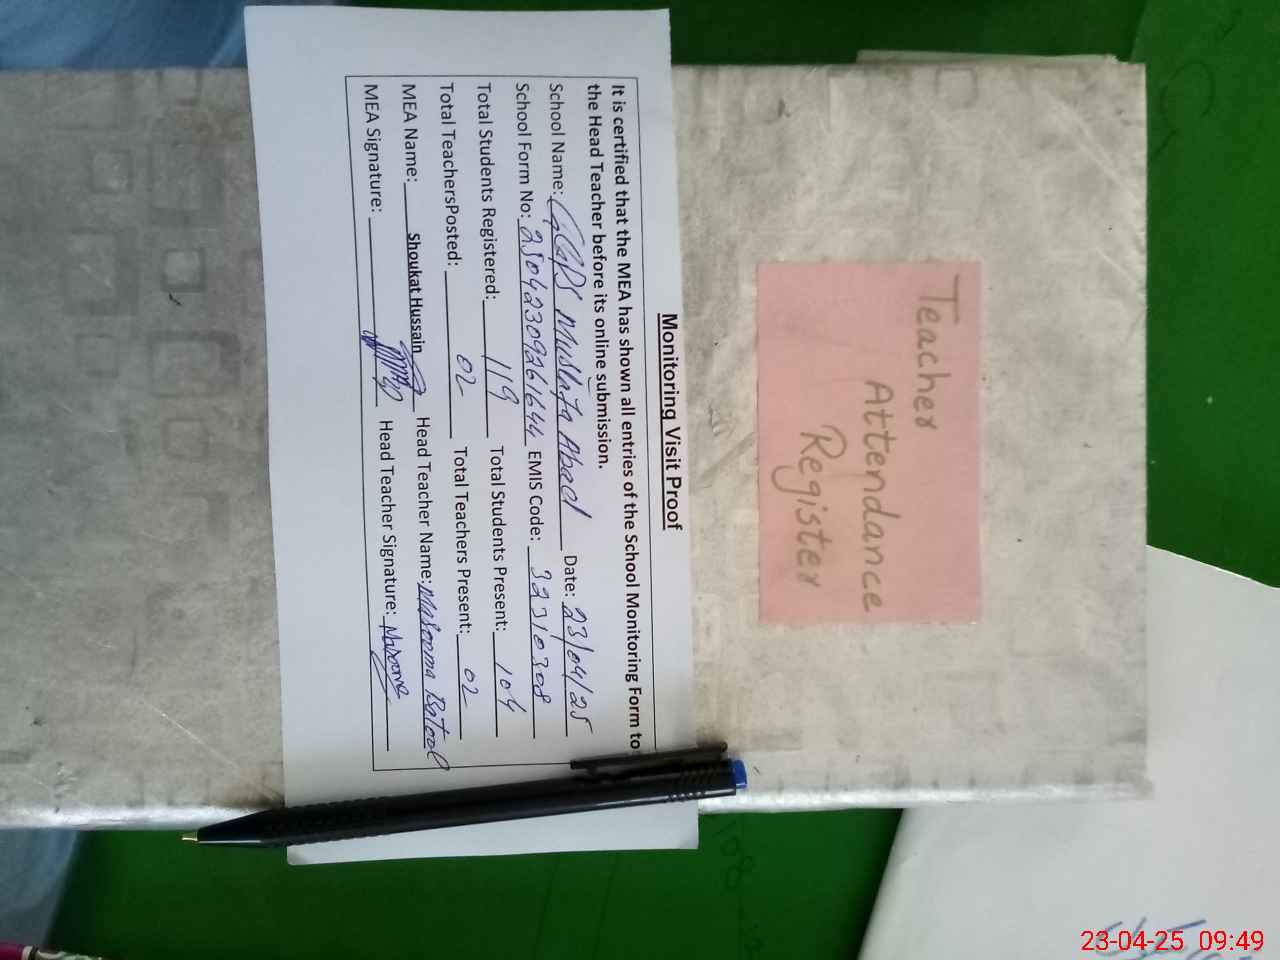 Monitoring Visit Proof
It is certified that the MEA has shown all entries of the School Monitoring Form to
the Head Teacher before its online submission.
School Name: GGPS Mustafa Abad Date: 23/04/25
School Form No: 25042309261644 EMIS Code: 32310308
Total Students Registered: 119 Total Students Present: 104
Total TeachersPosted: 02 Total Teachers Present: 02
MEA Name: Shoukat Hussain Head Teacher Name: Masooma Batool
MEA Signature: Head Teacher Signature: Masooma
Teacher
Attendance
Register
23-04-25 09:49